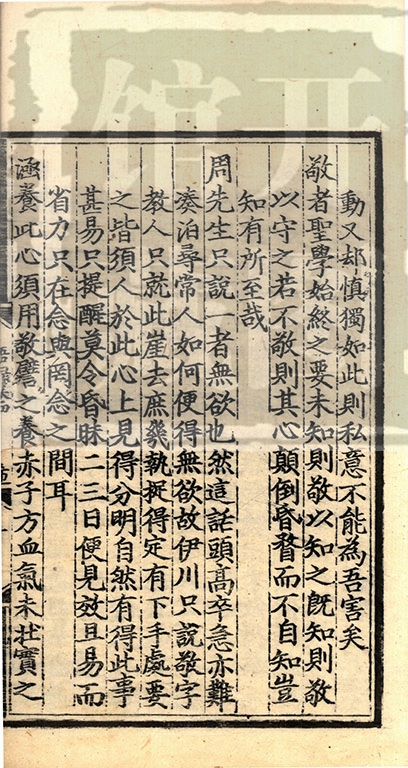 動又却慎獨如此則私意不能為吾害矣
敬者聖學始終之要未知則敬以知之既知則敬
以守之若不敬則其心顛倒昏瞀而不自知豈
知有所至哉
周先生只說一者無欲也然這話頭高卒急亦難
湊泊尋常人如何便得無欲故伊川只說敬字
教人只就此崖去庶幾執捉得定有下手處要
之皆須人於此心上見得分明自然有得此事
甚易只提醒莫令昏昧二三日便見效且易而
省力只在念與罔念之間耳
涵養此心須用敬譬之養赤子方血氣未壯實之